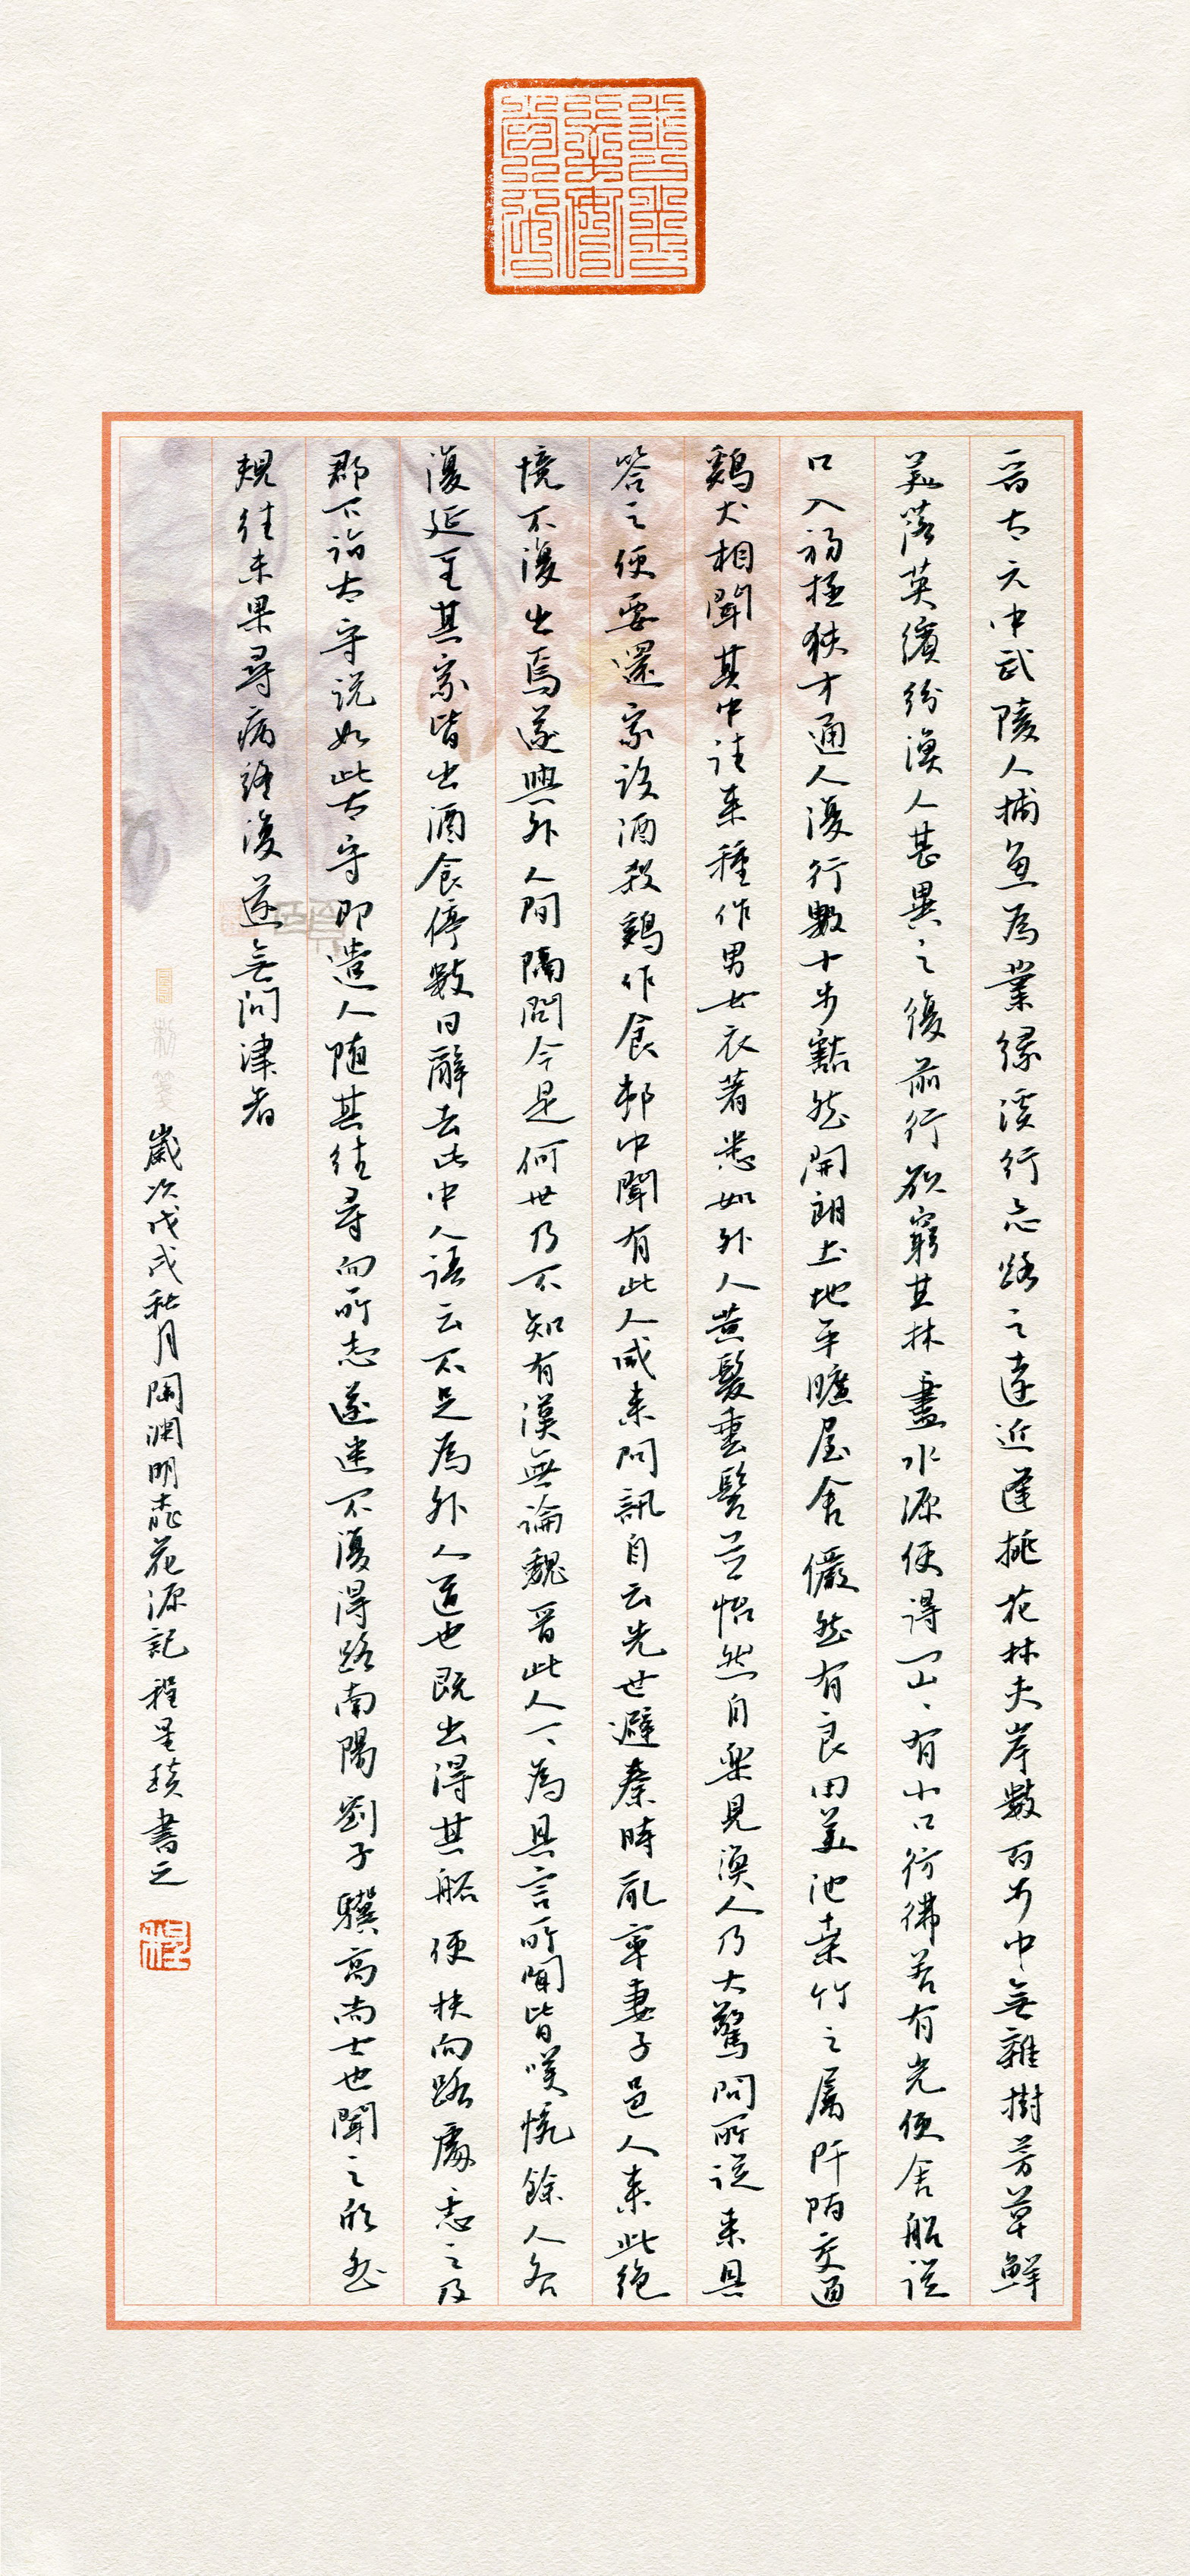 晉太元中武陵人捕魚為業緣溪行忘路之遠近逢桃花林夾岸數百步中無雜樹芳草鮮
美落英繽紛漁人甚異之復前行欲窮其林盡水源便得一山山有小口彷彿若有光便舍船從
口入初極狹才通人復行數十步豁然開朗土地平曠屋舍儼然有良田美池桑竹之屬阡陌交通
鷄犬相聞其中往來種作男女衣著悉如外人黃髮垂髫並怡然自樂見漁人乃大驚問所從來具
答之便要還家設酒殺鷄作食邨中聞有此人咸來問訊自云先世避秦時亂率妻子邑人來此絕
境不復出焉遂與外人間隔問今是何世乃不知有漢無論魏晉此人一一為具言所聞皆嘆惋餘人各
復延至其家皆出酒食停數日辭去此中人語云不足為外人道也既出得其船便扶向路處處志之及
郡下詣太守說如此太守即遣人隨其往尋向所志遂迷不復得路南陽劉子驥高尚士也聞之欣然
規往未果尋病終後遂無問津者
歲次戊戌秋月陶淵明桃花源記 程 書之
程